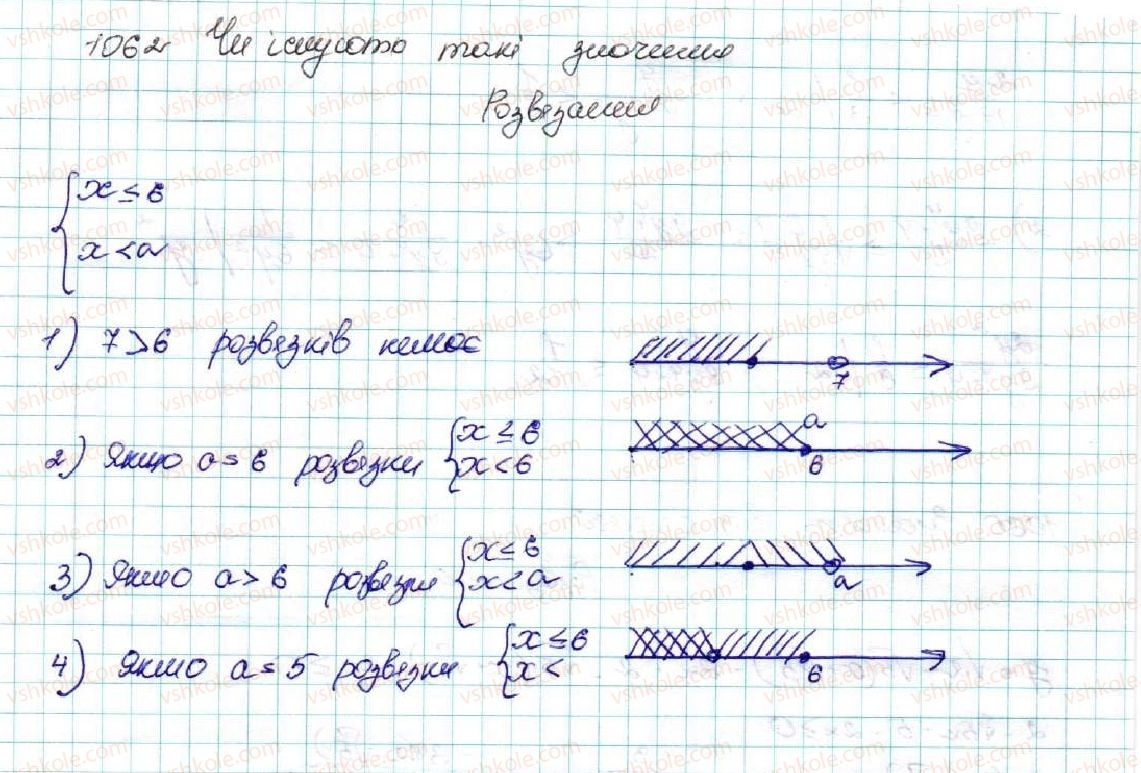 1062 Чи існують такі значення
Розвезання
{x ≤ 6
x < a
1) 7>6 розвезків немає
7
2) Якшо a = 6 розвезки {x ≤ 6
x < 6
a
6
3) Якшо a > 6 розвезки {x ≤ 6
x < a
a
4) якшо a = 5 розвезки {x ≤ 6
x <
6
vshkole.com